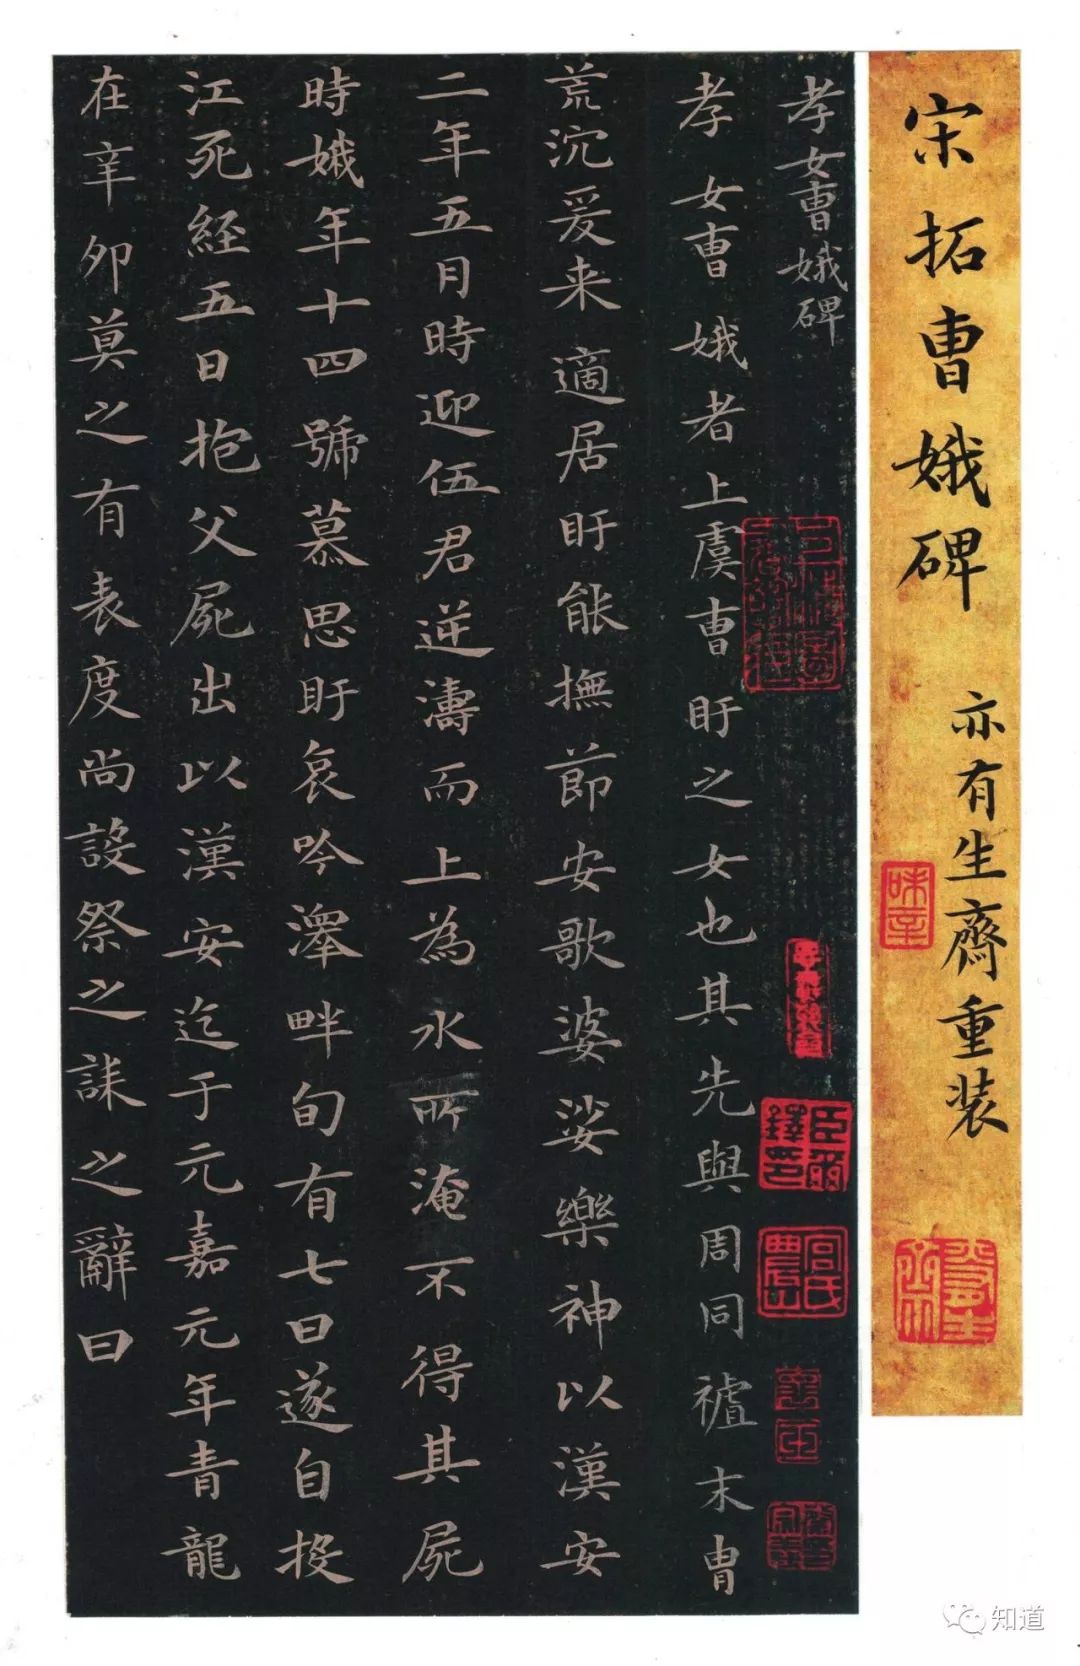 宋拓曹娥碑
亦有生齋重装
味辛
孝女曹娥碑
孝女曹娥者上虞曹盱之女也其先與周同祖末胄
荒沉爰来適居盱能撫節安歌婆娑樂神以漢安
二年五月時迎伍君逆濤而上為水所淹不得其屍
時娥年十四號慕思盱哀吟澤畔旬有七日遂自投
江死経五日抱父屍出以漢安迄于元嘉元年青龍
在辛卯莫之有表度尚設祭之誄之辭曰
臣爾鐸印
宫氏農山
知道